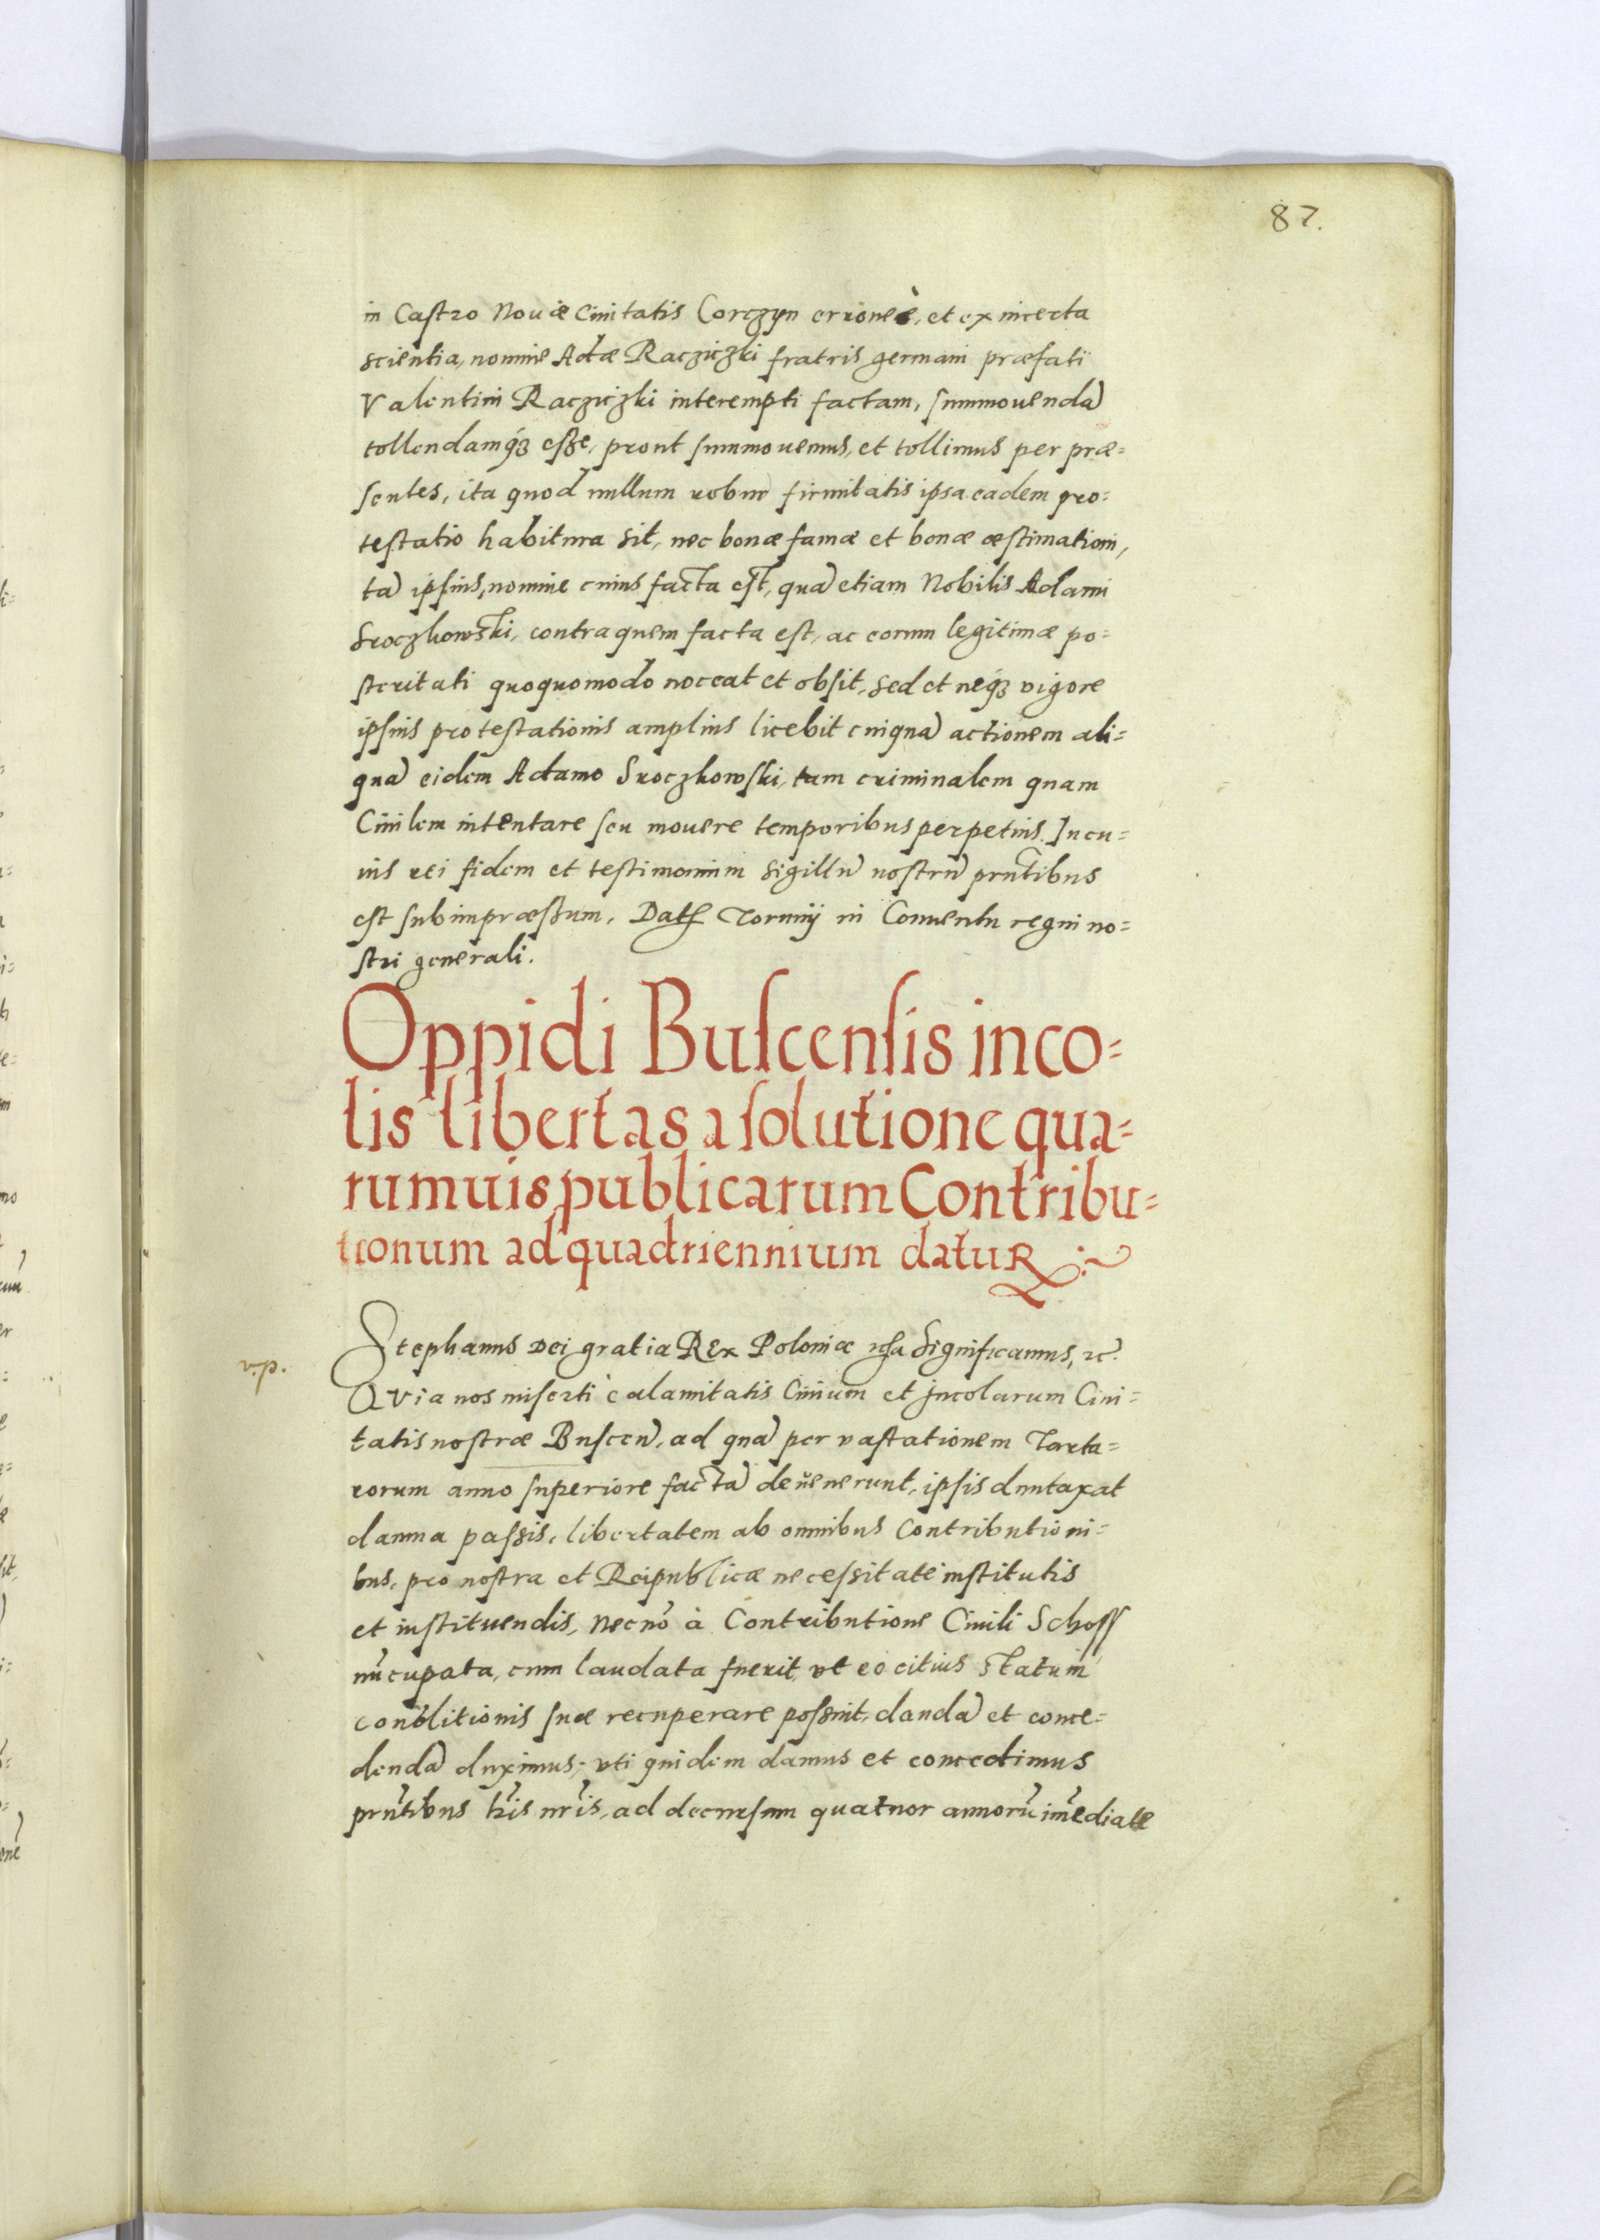 87.
in Castro Nouæ Ciuitatis Corczyn erroneè, et ex incerta
scientia, nomine Adæ Racziczki fratris germani præfati
Valentini Racziczki interempti factam, summouendã
tollendamq́3 eße, prout summouemus, et tollimus per præ=
sentes, ita quod nullum robur firmitatis ipsa eadem pro=
testatio habitura sit, nec bonæ famæ et bonæ æstimationi,
tã ipsius, nomine cuius facta est, quã etiam Nobilis Adami
Sroczkowski, contra quem facta est, ac eorum legitimæ po=
steritati quoquomodo noceat et obsit, sed et neq́3 vigore
ipsius protestationis amplius licebit cuiquã actionem ali=
quã eidem Adamo Sroczkowski, tam criminalem quam
Ciuilem intentare seu mouere temporibus perpetuis. In cu=
ius rei fidem et testimonium sigillũ nostrũ prñtibus
est subimpræßum. Dat Torunij in Conuentu regni no=
stri generali.
Oppidi Buscensis inco=
lis libertas a solutione qua=
rumuis publicarum Contribu=
tionum ad quadriennium datur
v.p.
Stephanus Dei gratia Rex Poloniæ Significamus, ꝛc̃.
Quia nos miserti calamitatis Ciuium et Incolarum Ciui=
tatis nostræ Buscen̄, ad quã per vastationem Tarta=
rorum anno superiore factã deuenerunt, ipsis duntaxat
damna passis, libertatem ab omnibus contributioni=
bus, pro nostra et Reipublicæ necessitate institutis
et instituendis, necnõ à Contributione Ciuili Schoss
nũcupata, cum laudata fuerit, vt eo citius statum
conditionis suæ recuperare possint, dandã et conce=
dendã duximus; vti quidem damus et concedimus
prñtibus lr̃is nr̃is, ad decursum quatuor annorũ im̃ediate